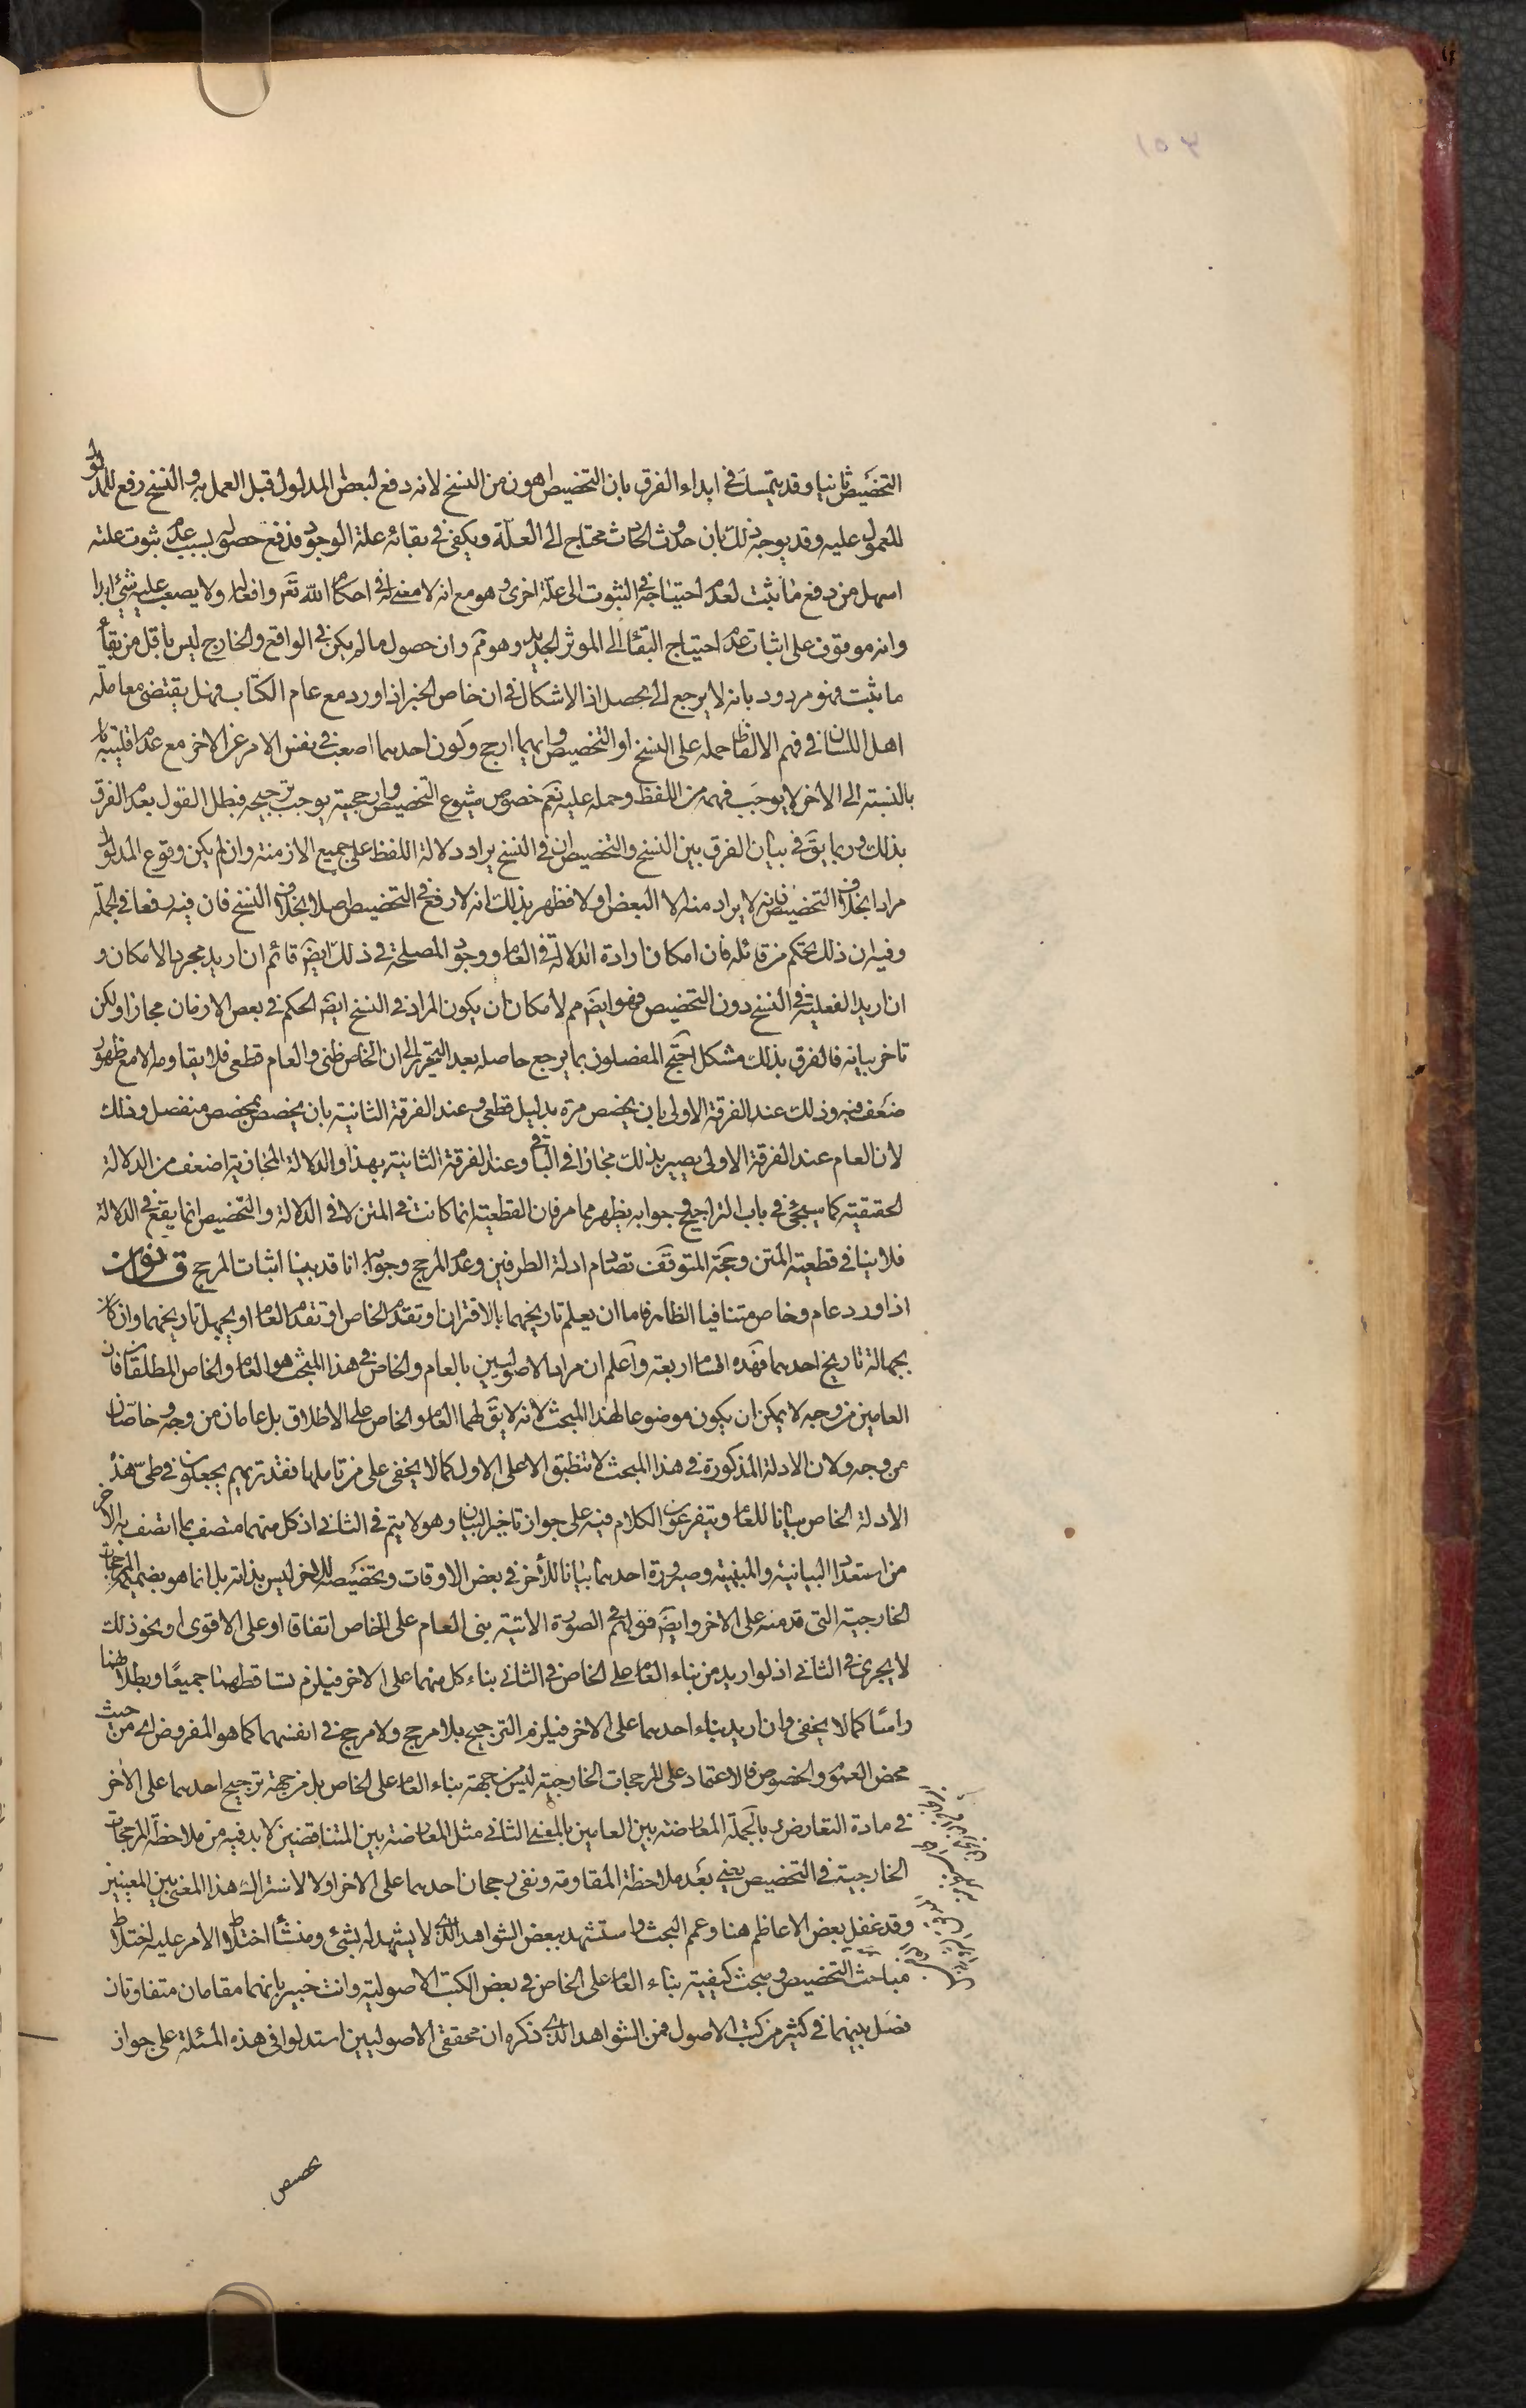 ١٥٣
التخصيص ثانيا وقد يتمسك في ابداء الفرق بان التخصيص اهون من النسخ لانه دفع لبعض المدلول قبل العمل به والنسخ رفع للمدلول
المعمول عليه وقد يوجه ذلك بان حدوث الحادث محتاج الى العلة ويكفى في بقائه علة الوجود فدفع حصوله بسبب عدم ثبوت علته
اسهل من دفع ما ثبت لعدم احتياجه في الثبوت الى علة اخرى وهو مع انه لا معنى له في احكام الله تعم وافعاله ولا يصعب عليه شئ ابدا
وانه موقوف على اثبات عدم احتياج البقاء الى الموثر الجديد وهو مم وان حصول ما لم يكن في الواقع والخارج ليس باقل من بقاء
ما ثبت فهو مردود بانه لا يرجع الى محصل اذ الاشكال في ان خاص الخبر اذا ورد مع عام الكتاب فهل يقتضى معاملة
اهل اللسان في فهم الالفاظ حمله على النسخ او التخصيص وايهما ارجح وكون احدهما اصعب في نفس الامر عن الاخر مع عدم اقليته
بالنسبة الى الاخر لا يوجب فهمه من اللفظ وحمله عليه نعم خصوص شيوع التخصيص وارجحيته يوجب ترجيحه فبطل القول بعدم الفرق
بذلك وربما يق في بيان الفرق بين النسخ والتخصيص ان في النسخ يراد دلالة اللفظ على جميع الازمنة وان لم يكن وقوع المدلول
مرادا بخلاف التخصيص فانه لا يراد منه الا البعض اولا فظهر بذلك انه لا رفع في التخصيص اصلا بخلاف النسخ فان فيه رفعا في الجملة
وفيه ان ذلك تحكم من قائله فان امكان ارادة الدلالة في العام ووجود المصلحة في ذلك ايض قائم ان اريد مجرد الامكان و
ان اريد الفعلية في النسخ دون التخصيص فهو ايض مم لامكان ان يكون المراد في النسخ ايض الحكم في بعض الازمان مجازا ولكن
تاخر بيانه فالفرق بذلك مشكل احتج المفصلون بما يرجع حاصله بعد التحرير الى ان الخاص ظنى والعام قطعى فلا يقاومه الا مع ظهور
ضعف فيه وذلك عند الفرقة الاولى بان يخصص مرة بدليل قطعى وعند الفرقة الثانية بان يخصص بمخصص منفصل وذلك
لان العام عند الفرقة الاولى يصير بذلك مجازا في الباقى وعند الفرقة الثانية بهذا والدلالة المجازية اضعف من الدلالة
الحقيقية كما سيجئ في باب التراجيح وجوابه يظهر مما مر فان القطعية انما كانت في المتن لا في الدلالة والتخصيص انما يقع في الدلالة
فلا ينافى قطعية المتن وحجة المتوقف تصادم ادلة الطرفين وعدم المرجح وجوابه انا قد بينا اثبات المرجح قانون
اذا ورد عام وخاص متنافيا الظاهر فاما ان يعلم تاريخهما بالاقتران او تقدم الخاص او تقدم العام او يجهل تاريخهما وان كان
بجهالة تاريخ احدهما فهذه اقسام اربعة واعلم ان مراد الاصوليين بالعام والخاص في هذا المبحث هو العام والخاص المطلقان فان
العامين من وجه لا يمكن ان يكون موضوعا لهذا المبحث لانه لا يق لهما العام والخاص على الاطلاق بل عامان من وجه وخاصان
من وجه ولان الادلة المذكورة في هذا المبحث لا تنطبق الا على الاول كما لا يخفى على من تاملها فقد تريهم يجعلون في طى هذه
الادلة الخاص بيانا للعام ويتفرعون الكلام فيه على جواز تاخير البيان وهو لا يتم في الثانى اذ كل منهما متصف بما اتصف به الاخر
من استعداد البيانية والمبينية وصيرورة احدهما بيانا للاخر في بعض الاوقات وتخصيصه للاخر ليس بذاته بل انما هو بضميمة المرجحات
الخارجية التى قدمته على الاخر وايض قولهم في الصورة الاتية بنى العام على الخاص اتفاقا او على الاقوى او نحو ذلك
لا يجرى في الثانى اذ لو اريد من بناء العام على الخاص في الثانى بناء كل منهما على الاخر فيلزم تساقطهما جميعا وبطلانهما
راسا كما لا يخفى وان اريد بناء احدهما على الاخر فيلزم الترجيح بلا مرجح ولا مرجح في انفسهما كما هو المفروض اى من حيث
محض العموم والخصوص فالاعتماد على المرجحات الخارجية ليس من جهة بناء العام على الخاص بل من جهة ترجيح احدهما على الاخر
في مادة التعارض وبالجملة المعارضة بين العامين بالمعنى الثانى مثل المعارضة بين المتناقضين لا بد فيه من ملاحظة المرجحات
الخارجية في التخصيص يعنى بعد ملاحظة المقاومة ونفى رجحان احدهما على الاخر اولا لاشتراك هذا المعنى بين المعنيين
وقد غفل بعض الاعاظم هنا وعمم البحث واستشهد ببعض الشواهد الذى لا يشهد له بشئ ومنشأ اختلاط الامر عليه اختلاط
مباحث التخصيص ومبحث كيفية بناء العام على الخاص في بعض الكتب الاصولية وانت خبير بانهما مقامان متفاوتان
فصل بينهما في كثير من كتب الاصول فمن الشواهد الذى ذكره ان محققى الاصوليين استدلوا في هذه المسئلة على جواز
تخصيص